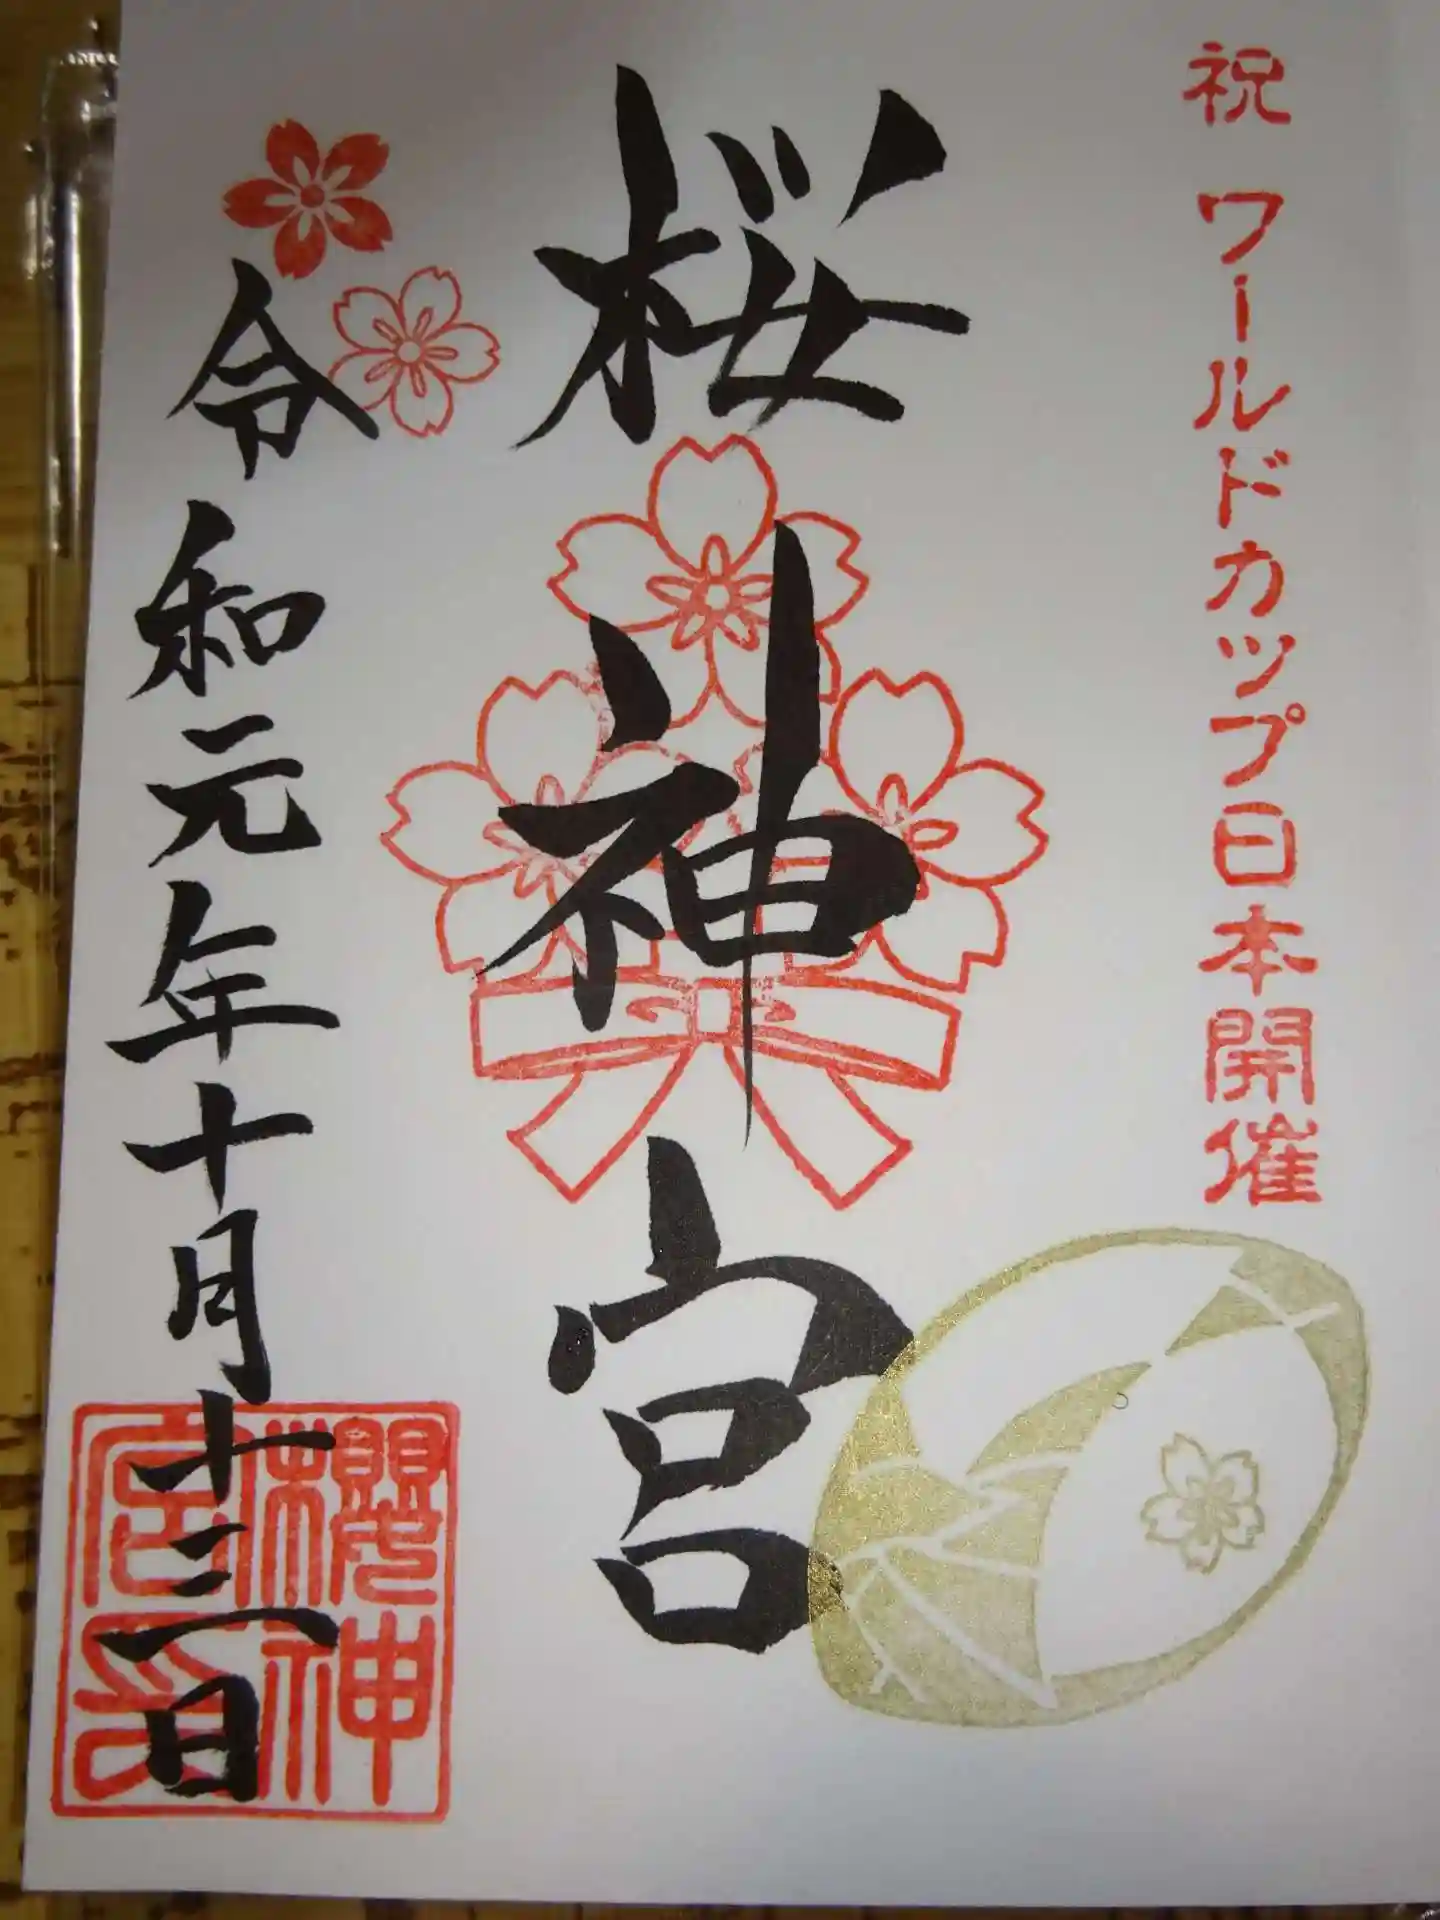 祝 ワールドカップ日本開催
桜神宮
令和元年十月十三日
櫻神
宮印